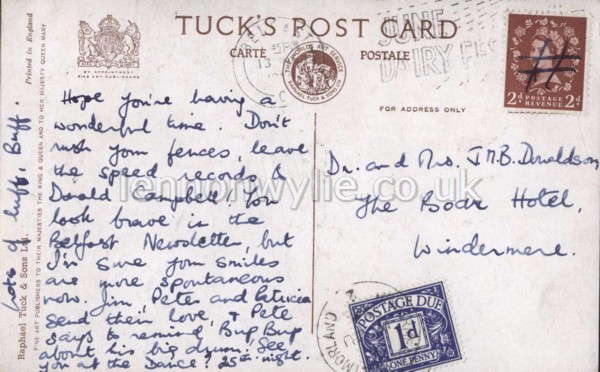 TUCK'S POST CARD
CARTE
POSTALE
BY APPOINTMENT
FINE ART PUBLISHERS
FOR ADDRESS ONLY
JUNE
DAIRY
2d POSTAGE REVENUE 2d
Hope you're having a
wonderful time. Don't
rush your fences, leave
the speed records to
Donald Campbell. You
look brave in the
Belfast Newsletter, but
I'm sure your smiles
are more spontaneous
now. Jim, Peter and Patricia
send their love & Pete
says to remind Bup Bup
about his big drum. See
you at the Dance. 25th night.
Lots of luff, Buff.
Dr. and Mrs. J.M.B. Donaldson
The Boar Hotel,
Windermere.
lennonwylie.co.uk
POSTAGE DUE
1d
ONE PENNY
MORLAND
Printed in England
Raphael Tuck & Sons Ltd.
FINE ART PUBLISHERS TO THEIR MAJESTIES THE KING & QUEEN AND TO HER MAJESTY QUEEN MARY